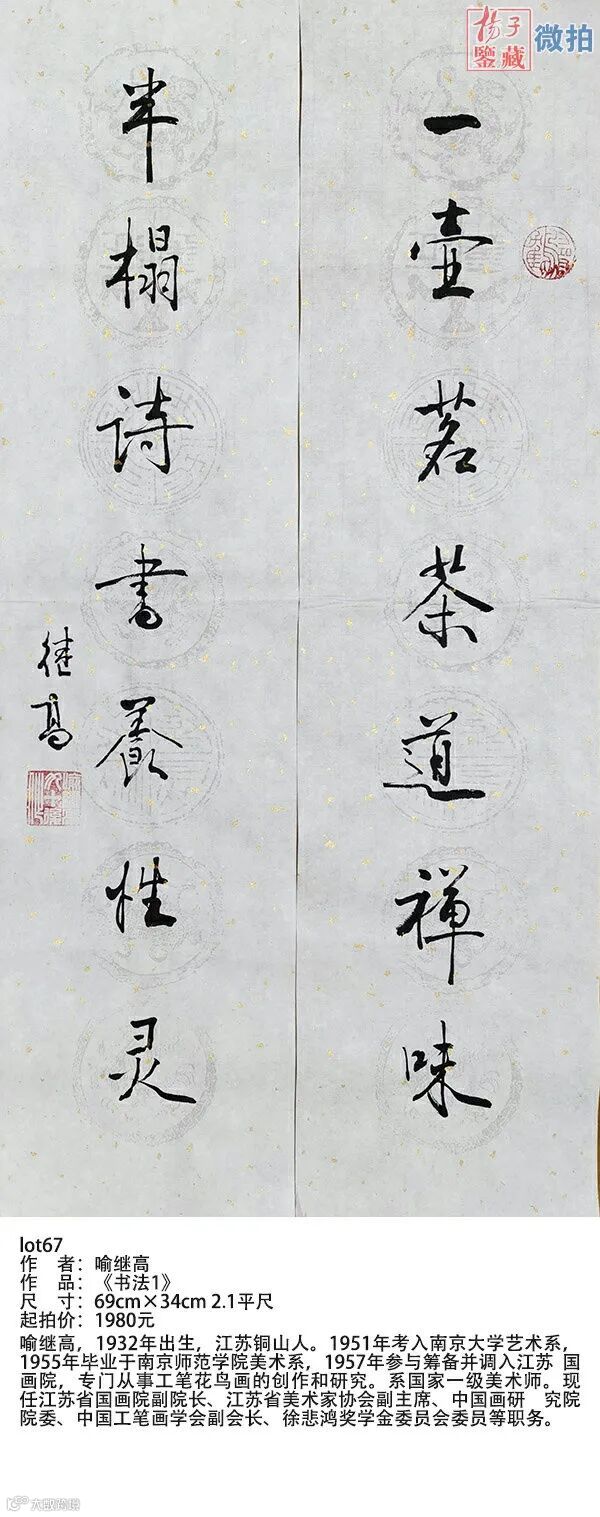 杨子
鉴藏
微拍
一壶茗茶道禅味
半榻诗书养性灵
继高
lot67
作 者：喻继高
作 品：《书法1》
尺 寸：69cm×34cm 2.1平尺
起拍价：1980元
喻继高，1932年出生，江苏铜山人。1951年考入南京大学艺术系，
1955年毕业于南京师范学院美术系，1957年参与筹备并调入江苏 国
画院，专门从事工笔花鸟画的创作和研究。系国家一级美术师。现
任江苏省国画院副院长、江苏省美术家协会副主席、中国画研 究院
院委、中国工笔画学会副会长、徐悲鸿奖学金委员会委员等职务。